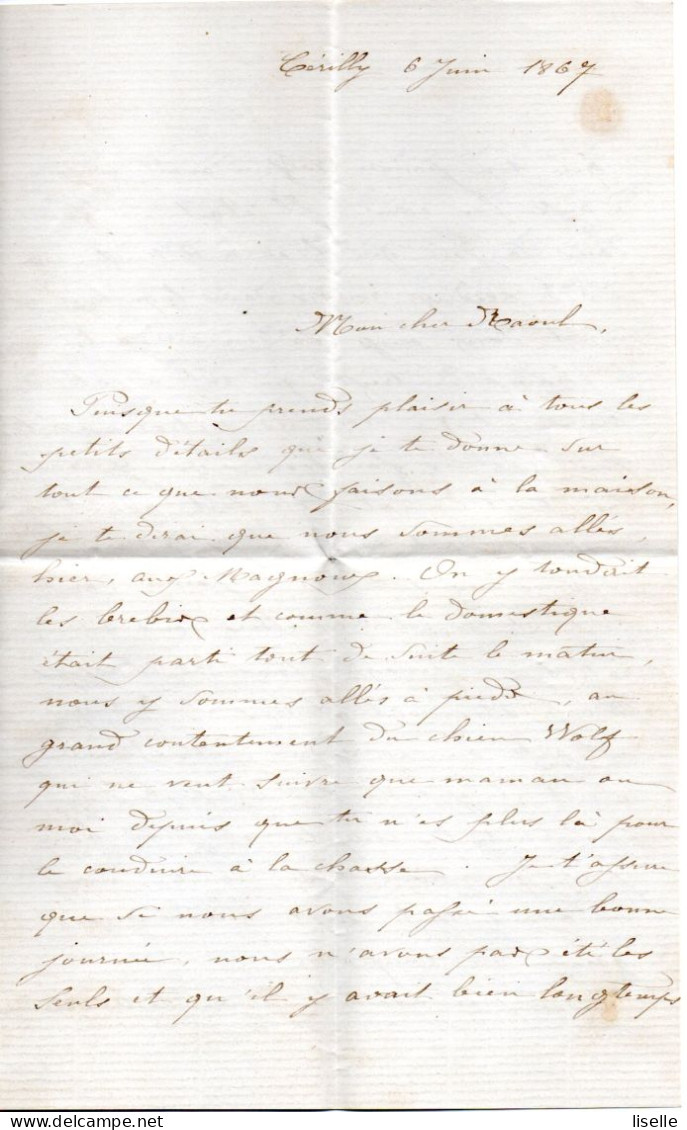 Cérilly 6 Juin 1867
Mon cher Raoul,
Puisque tu prends plaisir à tous les
petits détails que je te donne sur
tout ce que nous faisons à la maison,
je te dirai que nous sommes allés,
hier, aux Magnoux. On y tondait
les brebis et comme le domestique
était parti tout de suite le matin,
nous y sommes allés à pieds, au
grand contentement du chien Wolf
qui ne veut suivre que maman ou
moi depuis que tu n'es plus là pour
le conduire à la chasse. Je t'assure
que si nous avons passé une bonne
journée, nous n'avons pas été les
seuls et qu'il y avait bien longtemps
liselle